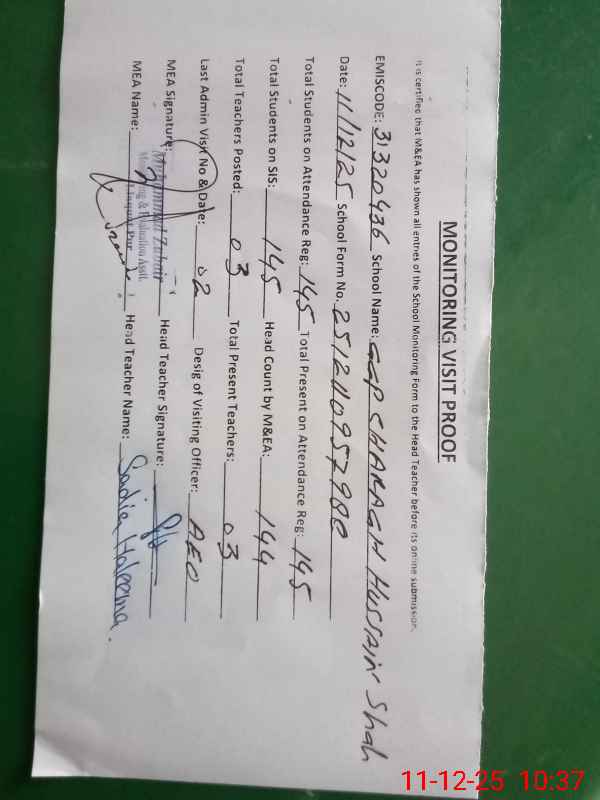 MONITORING VISIT PROOF
It is certified that M&EA has shown all entries of the School Monitoring Form to the Head Teacher before its online submission.
EMISCODE: 31320436 School Name: GGP CHARAGH HUSSAIN Shah
Date: 11/12/25 School Form No. 2512110957980
Total Students on Attendance Reg: 145 Total Present on Attendance Reg: 145
Total Students on SIS: 145 Head Count by M&EA: 144
Total Teachers Posted: 03 Total Present Teachers: 03
Last Admin Visit No & Date: 02 Desig of Visiting Officer: AEO
MEA Signature: Head Teacher Signature:
Muhammad Zubair
Monitoring & Evaluation Asstt.
Liaquat Pur
MEA Name: Head Teacher Name: Sadia Haleema.
11-12-25 10:37